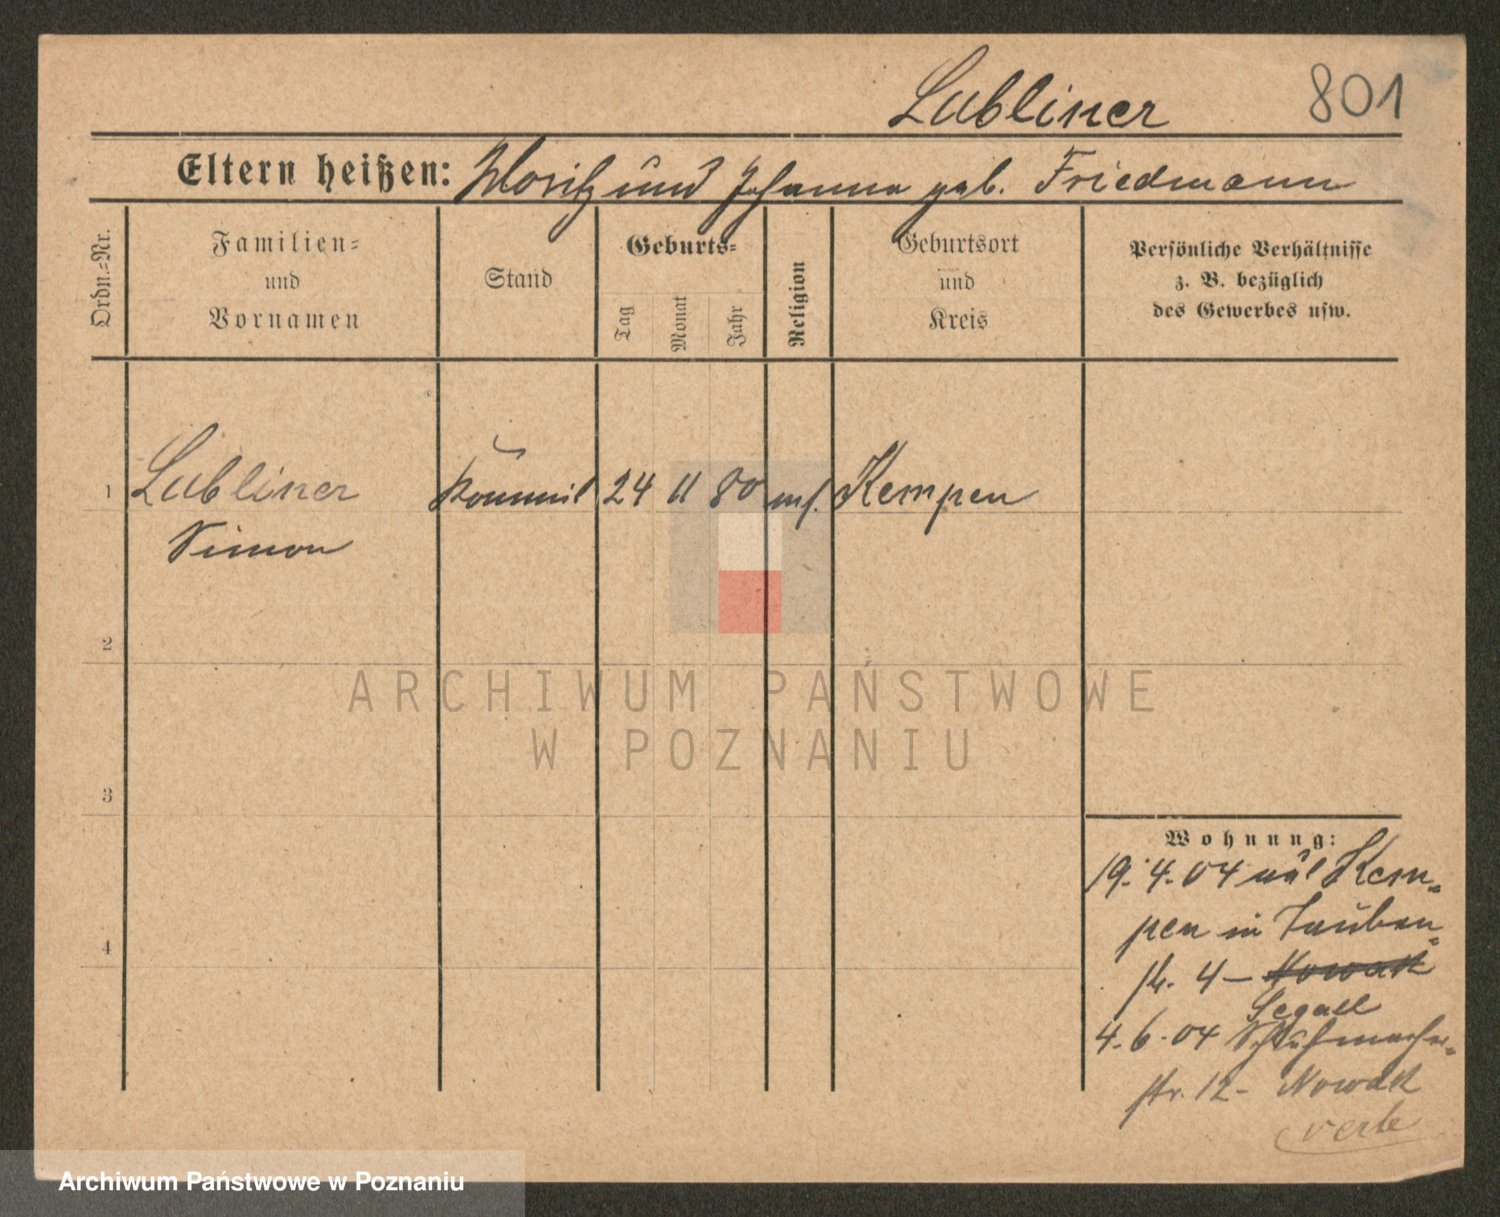 Lubliner 801
Eltern heißen: Moritz und Johanna geb. Friedmann
Ordn.=Nr.
Familien=
und
Vornamen
Stand
Geburts=
Tag
Monat
Jahr
Religion
Geburtsort
und
Kreis
Persönliche Verhältnisse
z. B. bezüglich
des Gewerbes usw.
1 Lubliner 24 11 80 mos. Kempen
Simon
2
3
4
Wohnung:
19.4.04 Kem=
pen in Tauben=
str. 4 – Nowak
Segall
4.6.04 Schuhmacher=
str. 12 – Nowak
verte
ARCHIWUM PAŃSTWOWE
W POZNANIU
Archiwum Państwowe w Poznaniu